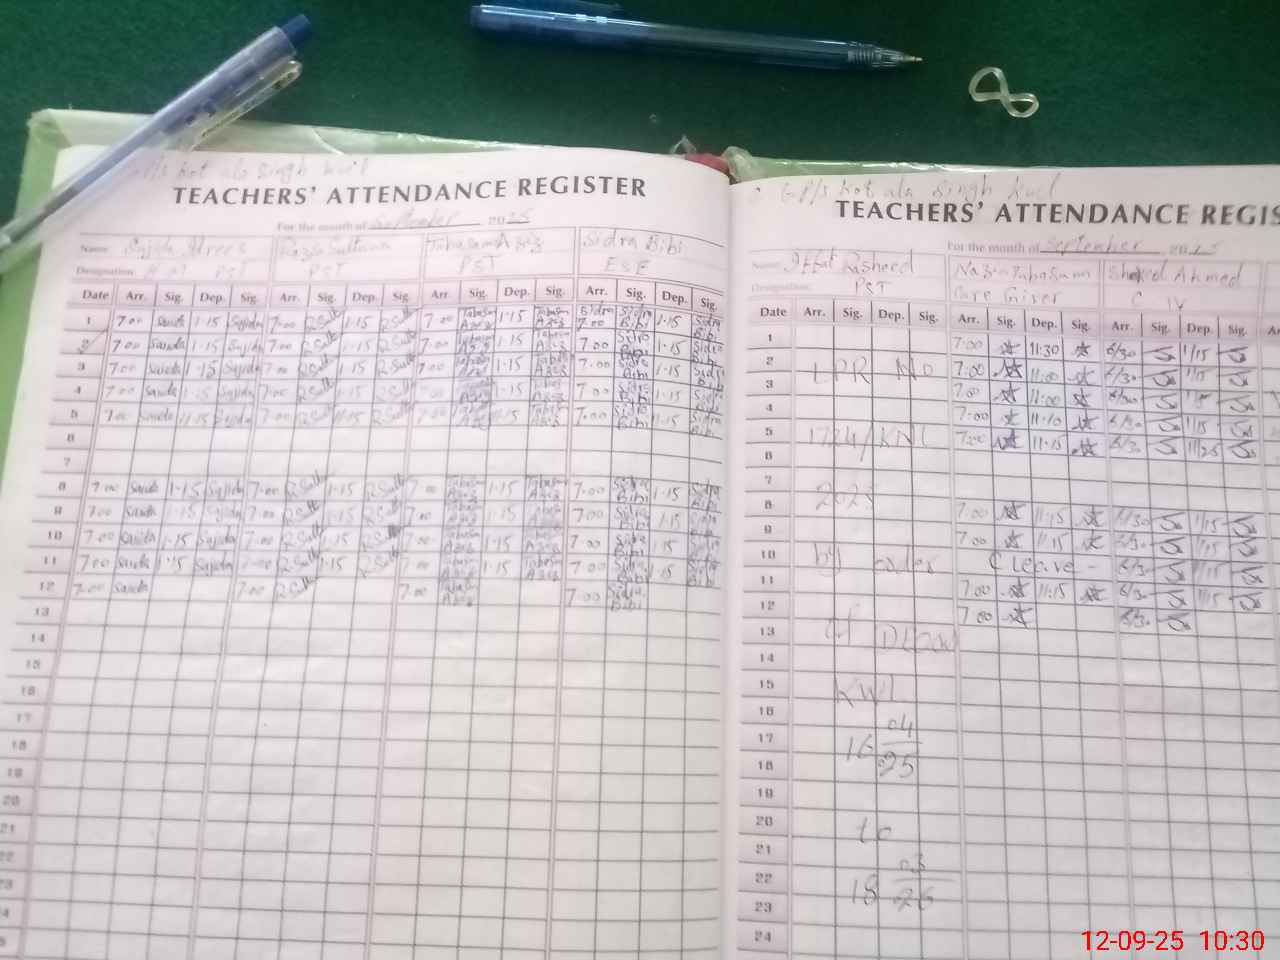 kot ala singh kwl
TEACHERS' ATTENDANCE REGISTER
For the month of September 2025
Name Sajida Tabasam Aziz Sidra Bibi
Designation PST PST PST ESE
Date Arr. Sig. Dep. Sig. Arr. Sig. Dep. Sig. Arr. Sig. Dep. Sig. Arr. Sig. Dep. Sig.
1 7:00 Sajida 1-15 Sajida 7-00 R Sult 1-15 R Sult 7-00 Tabasam Aziz 1-15 Tabasam Aziz 7-00 Sidra Bibi 1-15 Sidra Bibi
2 7:00 Sajida 1-15 Sajida 7-00 R Sult 1-15 R Sult 7-00 Tabasam Aziz 1-15 Tabasam Aziz 7-00 Sidra Bibi 1-15 Sidra Bibi
3 7:00 Sajida 1-15 Sajida 7-00 R Sult 1-15 R Sult 7-00 Tabasam Aziz 1-15 Tabasam Aziz 7-00 Sidra Bibi 1-15 Sidra Bibi
4 7:00 Sajida 1-15 Sajida 7-00 R Sult 1-15 R Sult 7-00 Tabasam Aziz 1-15 Tabasam Aziz 7-00 Sidra Bibi 1-15 Sidra Bibi
5 7:00 Sajida 1-15 Sajida 7-00 R Sult 1-15 R Sult 7-00 Tabasam Aziz 1-15 Tabasam Aziz 7-00 Sidra Bibi 1-15 Sidra Bibi
6
7
8 7:00 Sajida 1-15 Sajida 7-00 R Sult 1-15 R Sult 7-00 Tabasam Aziz 1-15 Tabasam Aziz 7-00 Sidra Bibi 1-15 Sidra Bibi
9 7:00 Sajida 1-15 Sajida 7-00 R Sult 1-15 R Sult 7-00 Tabasam Aziz 1-15 Tabasam Aziz 7-00 Sidra Bibi 1-15 Sidra Bibi
10 7:00 Sajida 1-15 Sajida 7-00 R Sult 1-15 R Sult 7-00 Tabasam Aziz 1-15 Tabasam Aziz 7-00 Sidra Bibi 1-15 Sidra Bibi
11 7:00 Sajida 1-15 Sajida 7-00 R Sult 1-15 R Sult 7-00 Tabasam Aziz 1-15 Tabasam Aziz 7-00 Sidra Bibi 1-15 Sidra Bibi
12 7:00 Sajida 7-00 R Sult 7-00 Tabasam Aziz 7-00 Sidra Bibi
13
14
15
16
17
18
19
20
21
22
23
kot ala singh kwl
TEACHERS' ATTENDANCE REGIS
For the month of September 2025
Name Iffat Rasheed Tabasam Ahmed
Designation: PST Care Giver C IV
Date Arr. Sig. Dep. Sig. Arr. Sig. Dep. Sig. Arr. Sig. Dep. Sig.
1 7:00 11:30 6/30 1/15
2 LPR NO 7:00 11:00 6/30 1/15
3 7:00 11:00 6/30 1/15
4 7:00 11:10 6/30 1/15
5 1724/KWL 7:00 11:15 6/30 11/25
6
7
8 2025 7:00 11:15 6/30 1/15
9 7:00 11:15 6/30 1/15
10 by order C leave - 6/30 1/15
11 7:00 11:15 6/30 1/15
12 7:00 6/30
13 of
14
15 KWL
16 04
17 16
18 25
19
20 to
21
22 03
23 18 26
24
12-09-25 10:30